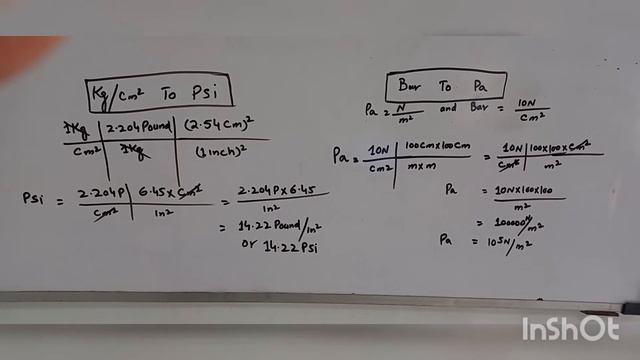 Kg/cm² To Psi
1Kg | 2.204 Pound | (2.54cm)²
cm² | 1Kg | (1inch)²
Psi = 2.204P | 6.45 x cm² = 2.204P x 6.45
cm² | in² in²
= 14.22 Pound/in²
or 14.22 Psi
Bar To Pa
Pa = N/m² and Bar = 10N/cm²
Pa = 10N | 100cm x 100cm = 10N | 100x100x cm²
cm² | m x m cm² | m²
Pa = 10N x 100 x 100
m²
= 100000 N/m²
Pa = 10⁵N/m²
InShOt